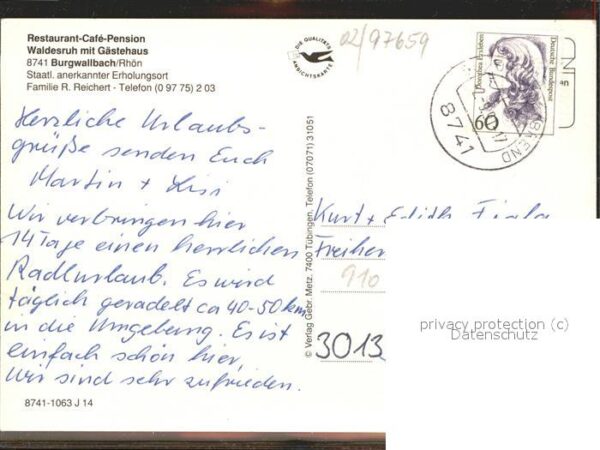 Restaurant-Café-Pension
Waldesruh mit Gästehaus
8741 Burgwallbach/Rhön
Staatl. anerkannter Erholungsort
Familie R. Reichert - Telefon (0 97 75) 2 03
Herzliche Urlaubs-
grüße senden Euch
Martin + Sisi
Wir verbringen hier
14 Tage einen herrlichen
Radlurlaub. Es wird
täglich geradelt ca 40-50 km
in die Umgebung. Es ist
einfach schön hier,
wir sind sehr zufrieden.
8741-1063 J 14
DIE QUALITÄTS
ANSICHTSKARTE
© Verlag Gebr. Metz, 7400 Tübingen, Telefon (07071) 31051
02/97659
Dorothea Erxleben
Deutsche Bundespost
60
8741
Kurt + Edith
Freiher
910
3013
privacy protection (c)
Datenschutz